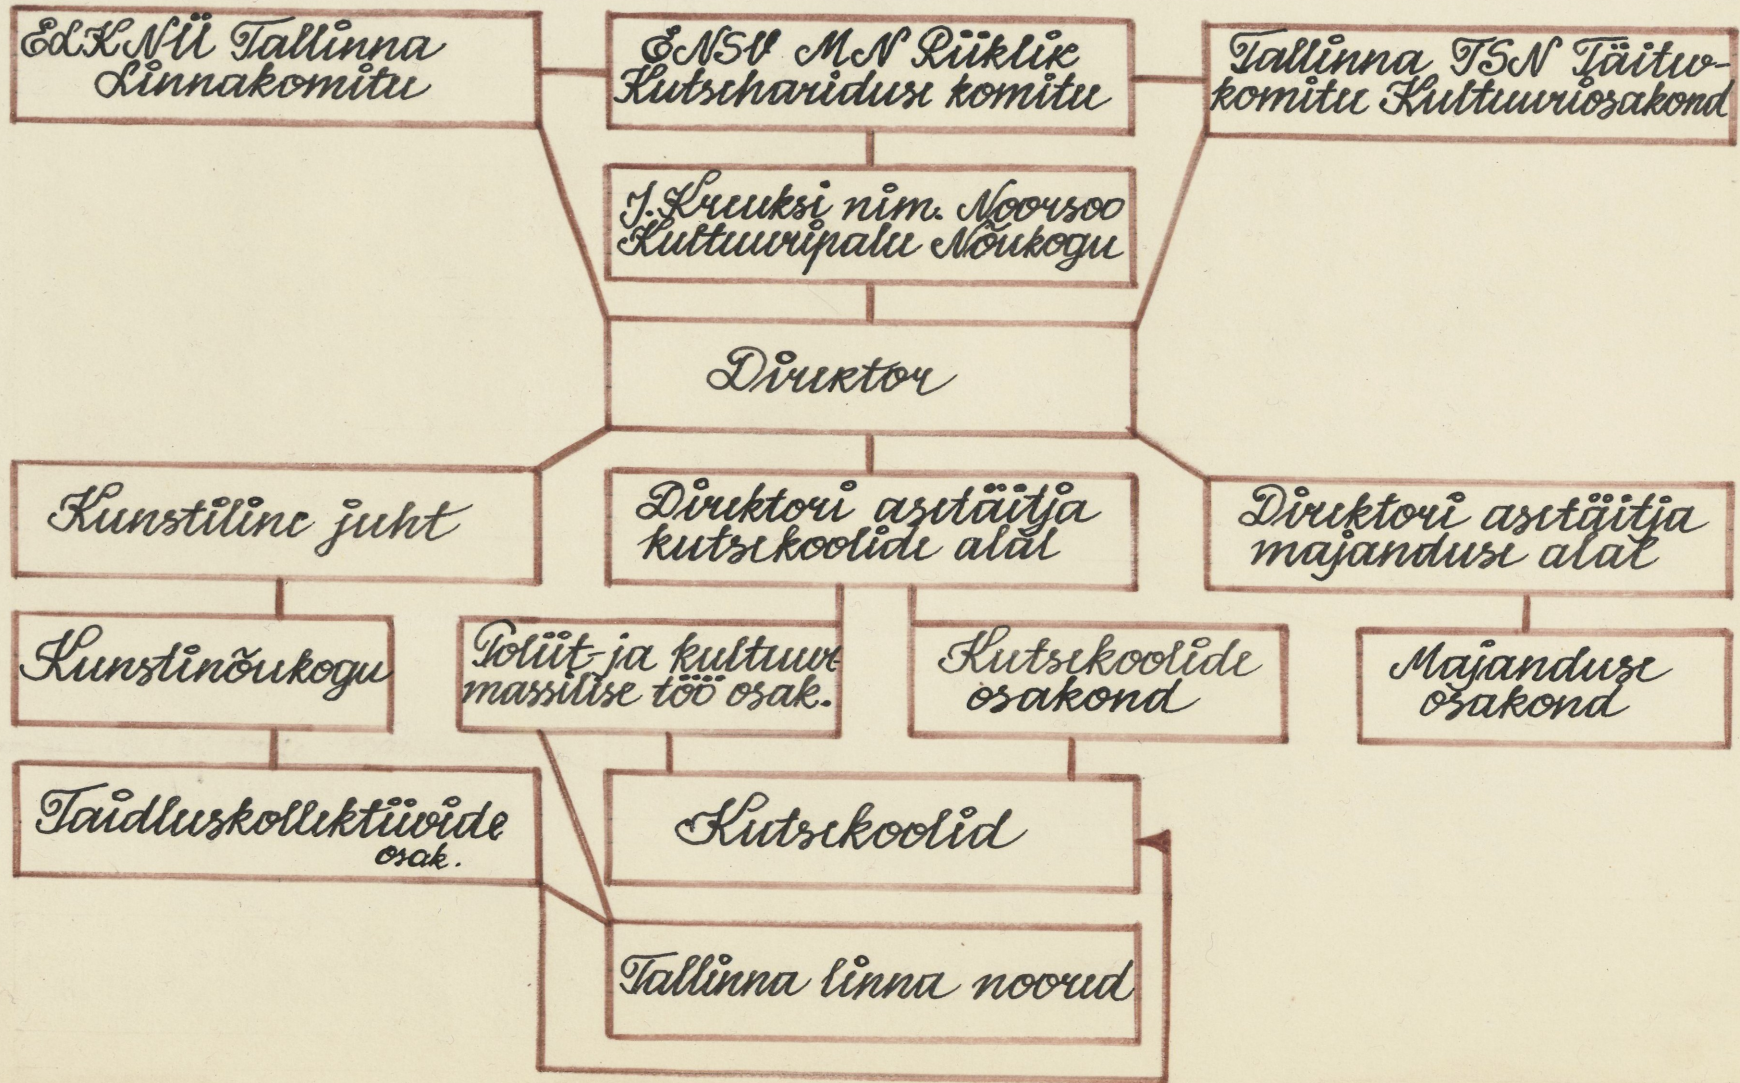 ELKNÜ Tallinna
Linnakomitee
ENSV MN Riiklik
Kutsehariduse komitee
Tallinna TSN Täitev-
komitee Kultuuriosakond
J. Kreuksi nim. Noorsoo
Kultuuripalee Nõukogu
Direktor
Kunstiline juht
Direktori asetäitja
kutsekoolide alal
Direktori asetäitja
majanduse alal
Kunstinõukogu
Poliit-ja kultuuri
massilise töö osak.
Kutsekoolide
osakond
Majanduse
osakond
Taidluskollektiivide
osak.
Kutsekoolid
Tallinna linna noored